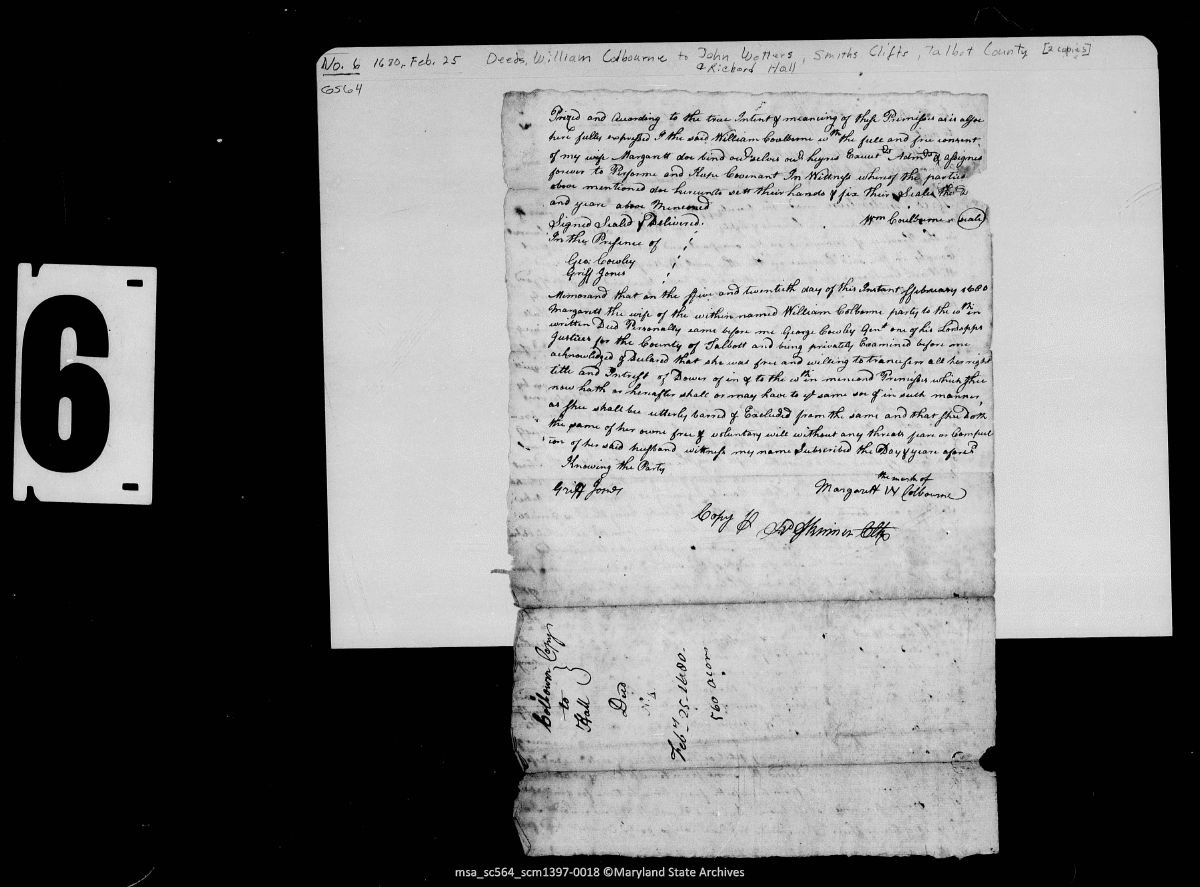 No. 6 1680, Feb. 25 Deeds, William Colbourne to John Wotters, Smiths Clifts, Talbot County [2 copies]
& Richard Hall
GS64
6
Prized and According to the true Intent & meaning of these Premisses as is above
here fully expressed I the said William Coulborne wth the full and free consent
of my wife Margarett doe bind our selves our heyres Execut Admrs & assignes
forever to Performe and Keepe Covenant In Wittness whereof the parties
above mentioned doe hereunto sett their hands & fix their Seales the
and yeare above Menconed
Signed Sealed & Delivered Wm Coulborne (seale)
In the Presence of
Geo: Cowley
Griff Jones
Memorand that on the ffive and twentieth day of this Instant ffebruary 1680
Margarett the wife of the within named William Colborne party to the wthin
written Deed Personally came before me George Cowley Gent one of his Lordspps
Justices for the County of Talbott and being privately Examined before me
acknowledged & Declared that she was free and willing to transferr all her right
title and Intrest of Dower of in & to the wthin mencond Premisses which shee
now hath or hereafter shall or may have to ye same soe & in such manner,
as shee shall bee utterly barred & Excluded from the same and that shee doth
the same of her owne free & voluntary will without any threats feare or Compul
ion of her said husband wittness my name Subscribed the Day & yeare aforesd
Knowing the Party
Griff Jones
the mark of
Margarett W Colbourne
Copy Skinner Clk
Colbourn Copy
to
Hall
Deed
Feby 25 1680.
560 acors
msa_sc564_scm1397-0018 ©Maryland State Archives